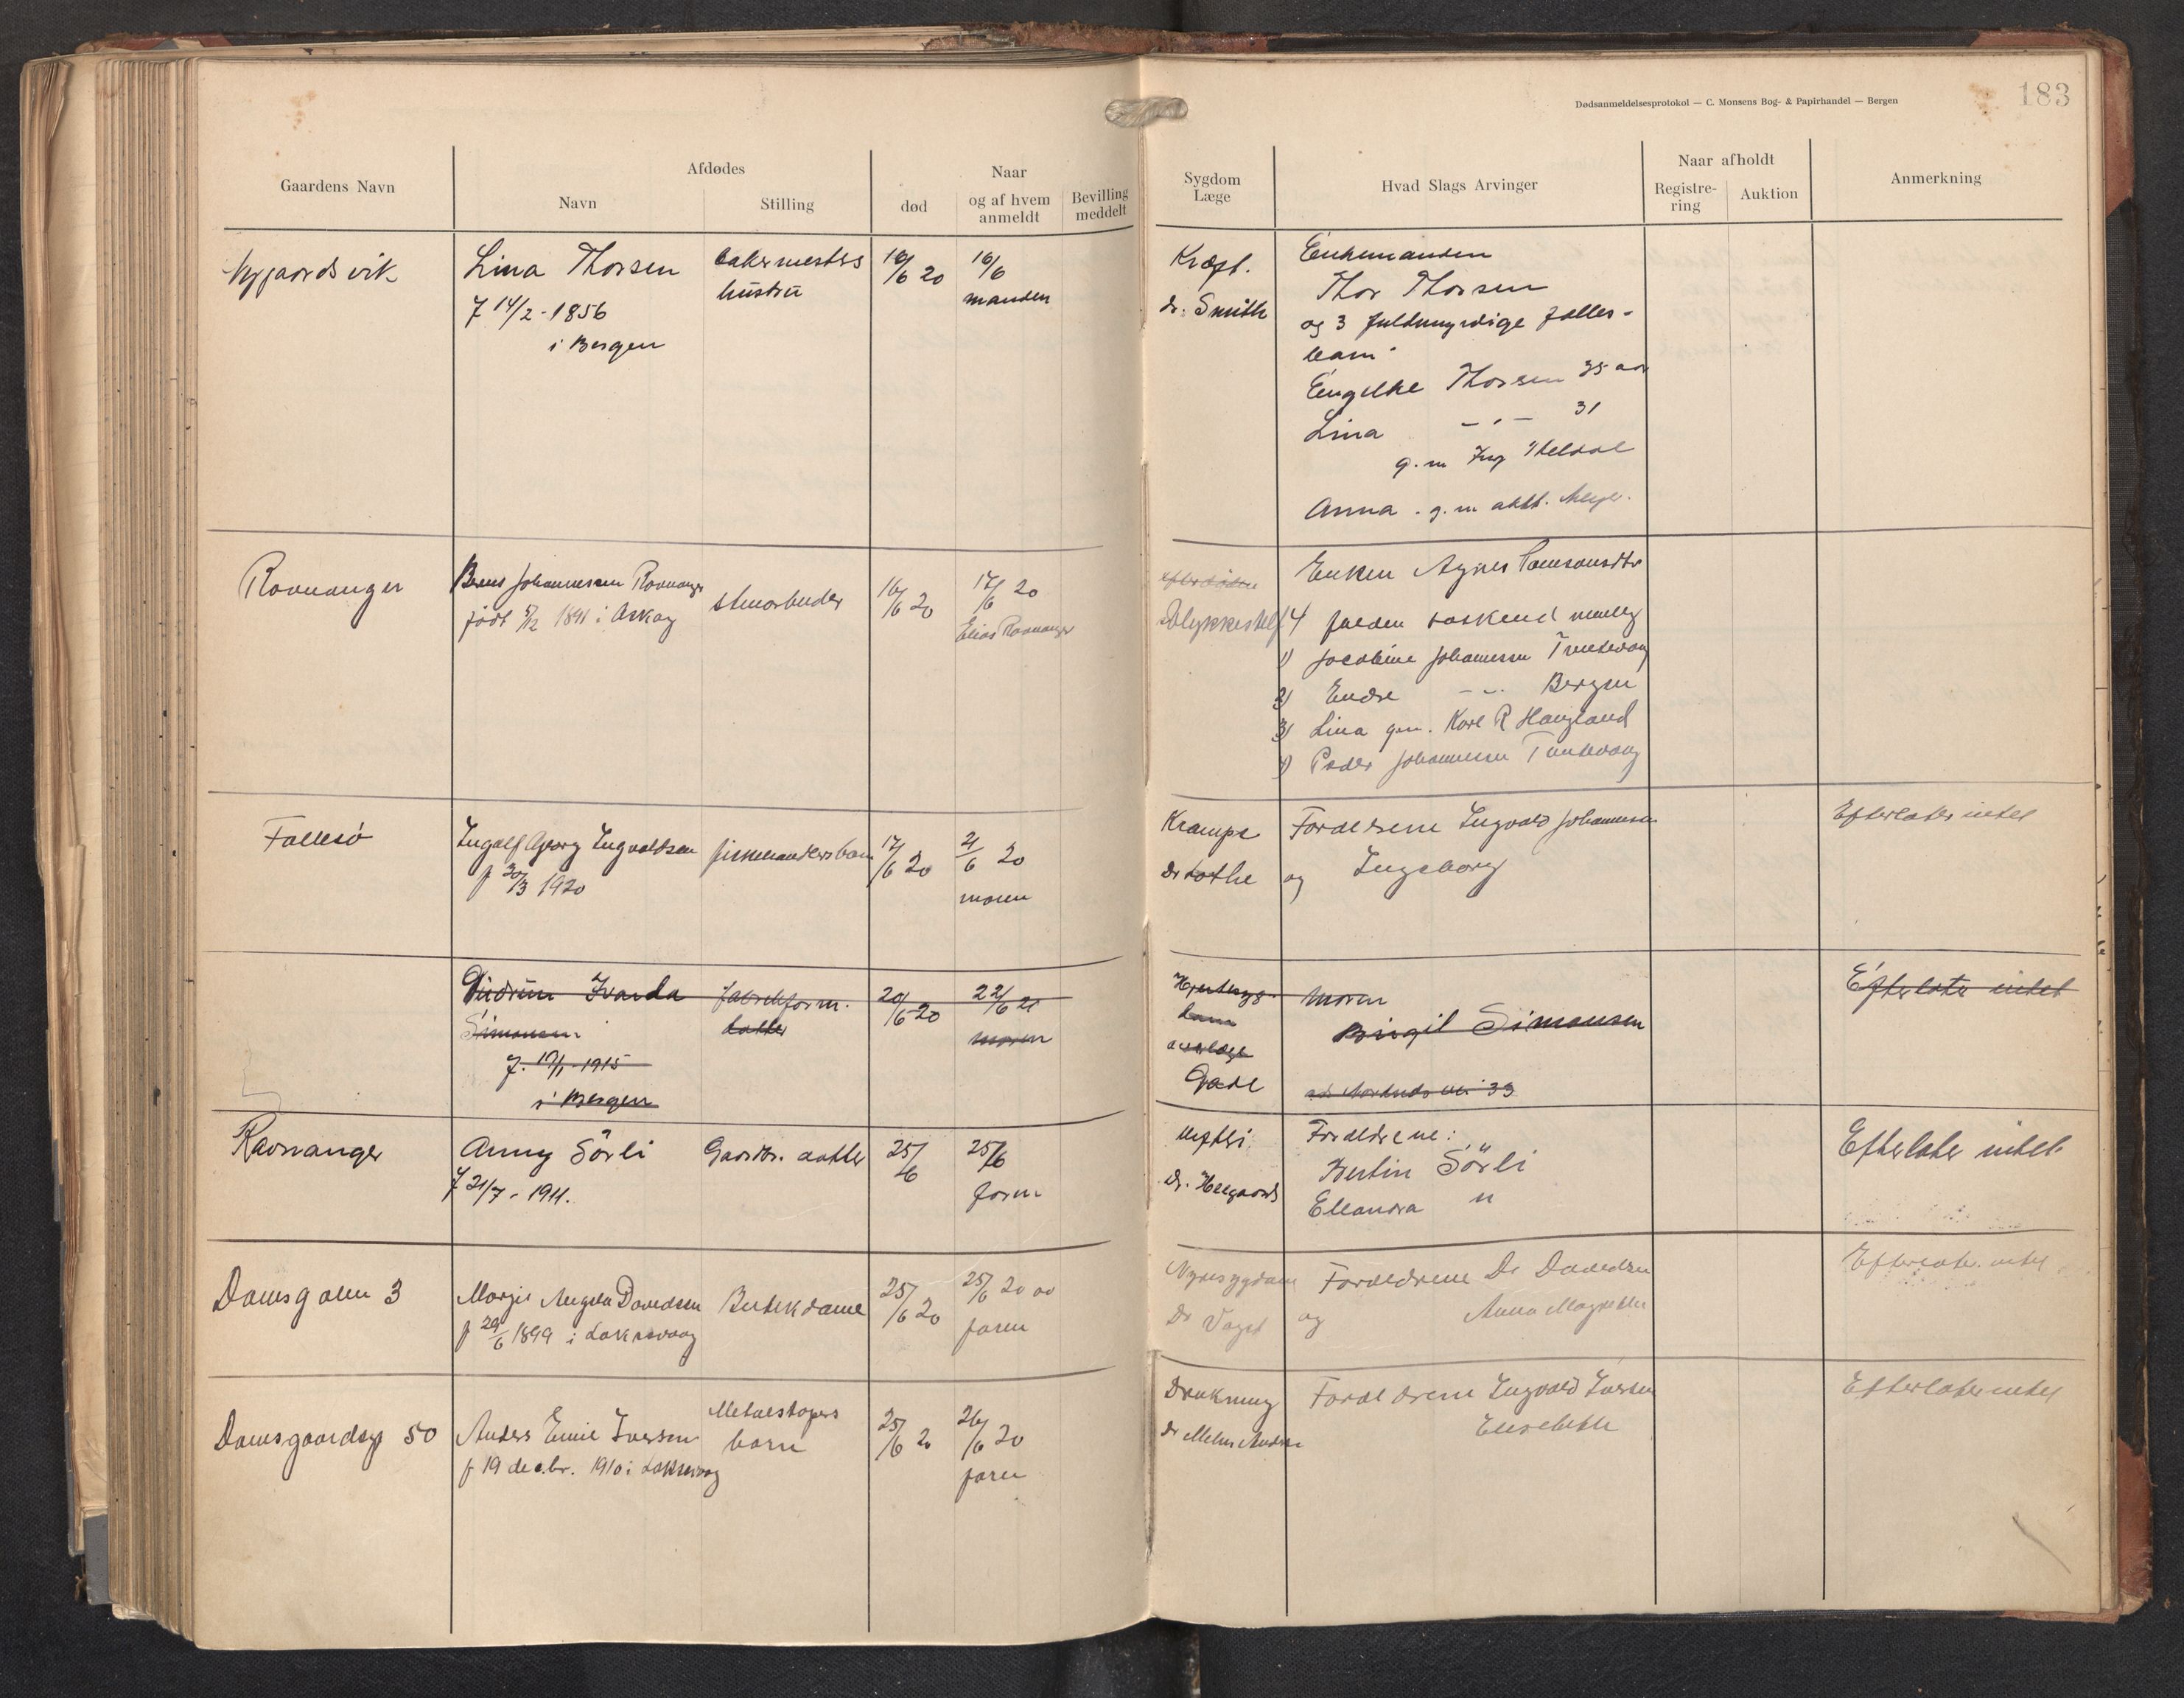 Dødsanmeldelsesprotokol — C. Monsens Bog- & Papirhandel — Bergen
183
Gaardens Navn
Afdødes
Navn
Stilling
død
Naar
og af hvem
anmeldt
Bevilling
meddelt
Sygdom
Læge
Hvad Slags Arvinger
Naar afholdt
Registre-
ring
Auktion
Anmerkning
Nygaardsvik
Lina Thorsen
f 14/2 - 1856
i Bergen
bakermesters
hustru
16/6 20
16/6
manden
Kræft.
dr. Smith
Enkemanden
Thor Thorsen
og 3 fuldmyndige fælles-
barn
Engelke Thorsen 35 aar
Lina - " - 31
g. m Ing
Anna . g. m
Ravnanger
Johannessen Ravnanger
født 5/12 1891 i Askøy
16/6 20
17/6 20
Elias Ravnanger
Ulykkestilf
Enken Agnes
4 søskend
1) Jacobine Johannessen
2) Endre - " - Bergen
3) Lina gm. Karl R Haugland
4) Peder Johannessen
Follesø
Ingolf Georg Ingvaldsen
f 30/3 1920
fiskehandlers barn
17/6 20
21/6 20
moren
Krampe
Dr Lothe
Forældrene Ingvald Johannessen
og Ingeborg
Efterlater intet
Gudrun Wanda
Simonsen
f. 19/1 - 1915
i Bergen
datter
20/6 20
22/6 20
moren
Gade
moren
Birgit Simonsen
33
Efterlater intet
Ravnanger
Anny Sørli
f 21/7 - 1911.
Gaardbr. datter
25/6
25/6
faren
Difteri
Forældrene:
Bertin Sörli
Eleanora "
Efterlater intet
Damsgalen 3
Margit Angela Davidsen
f 29/6 1899 i Laksevaag
Butikdame
25/6 20
25/6 20
faren
Nyresygdom
Dr
Forældrene
og Anna
Efterlater intet
Damsgaardsg 50
Anders Emil Iversen
f 19 decbr. 1910 i Laksevaag
Metalstøpers
barn
25/6 20
26/6 20
faren
Drukning
Forældrene Ingvald Iversen
Elisebeth
Efterlater intet